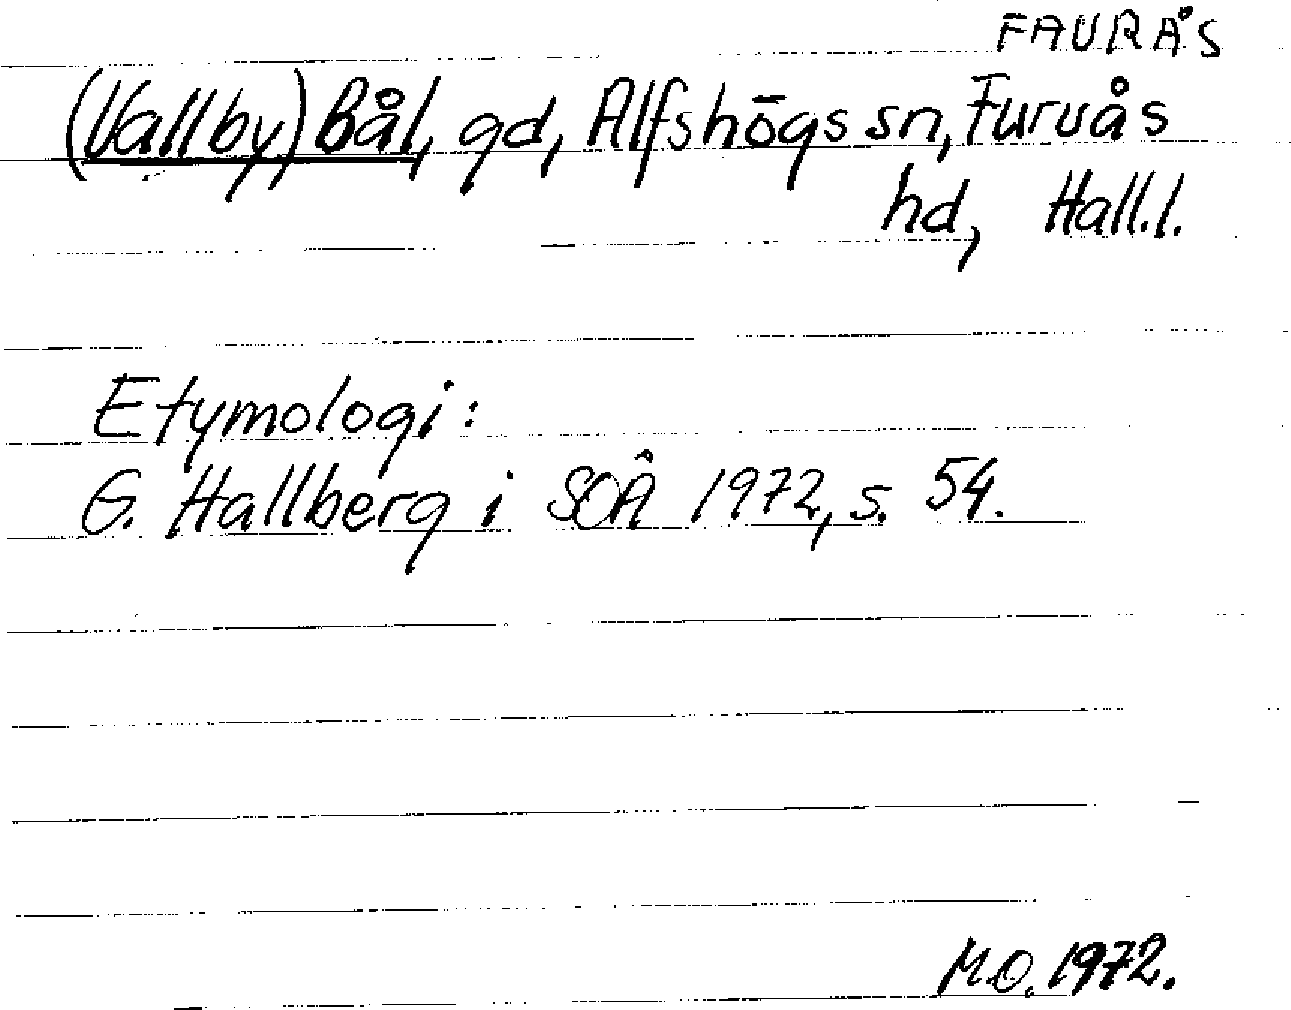 FAURÅS
(Vallby) Bål, gd, Alfshögs sn, Furuås
hd, Hall.l.
Etymologi:
G. Hallberg i SOÅ 1972, s. 54.
M.O. 1972.